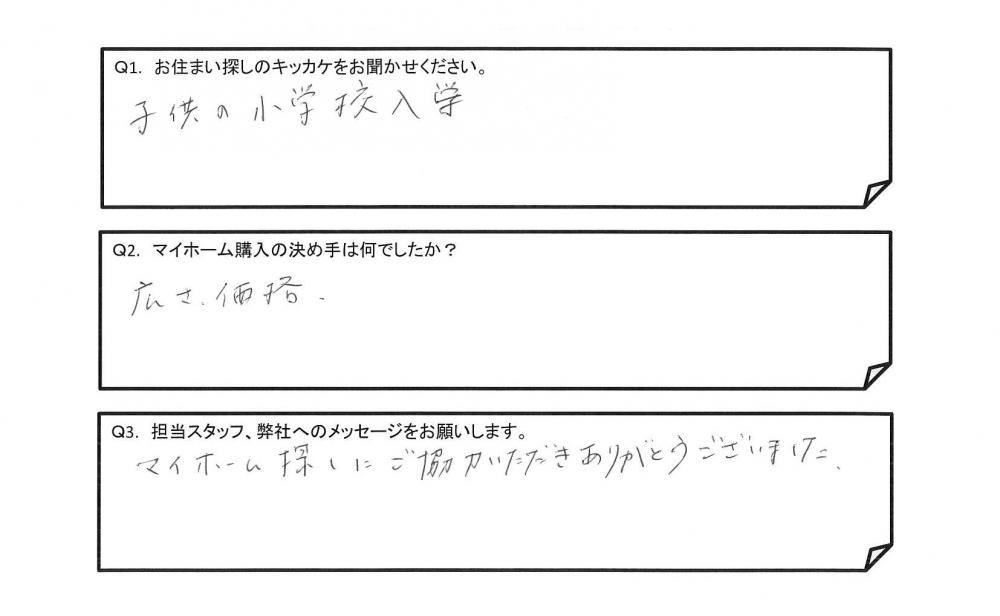 Q1. お住まい探しのキッカケをお聞かせください。
子供の小学校入学
Q2. マイホーム購入の決め手は何でしたか？
広さ、価格.
Q3. 担当スタッフ、弊社へのメッセージをお願いします。
マイホーム探しにご協力いただきありがとうございました.